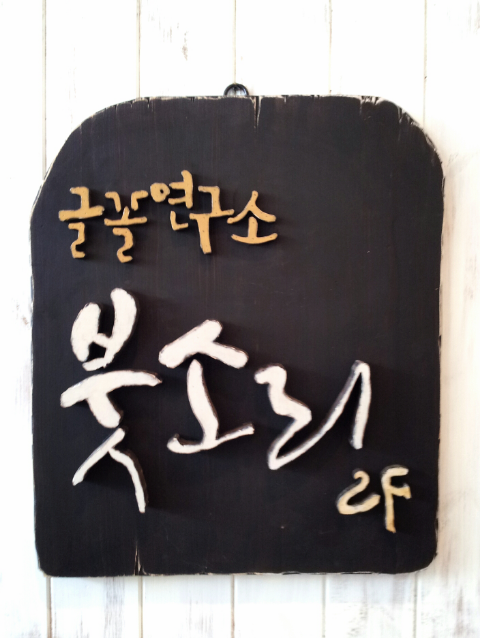 글꼴연구소
붓소리
라